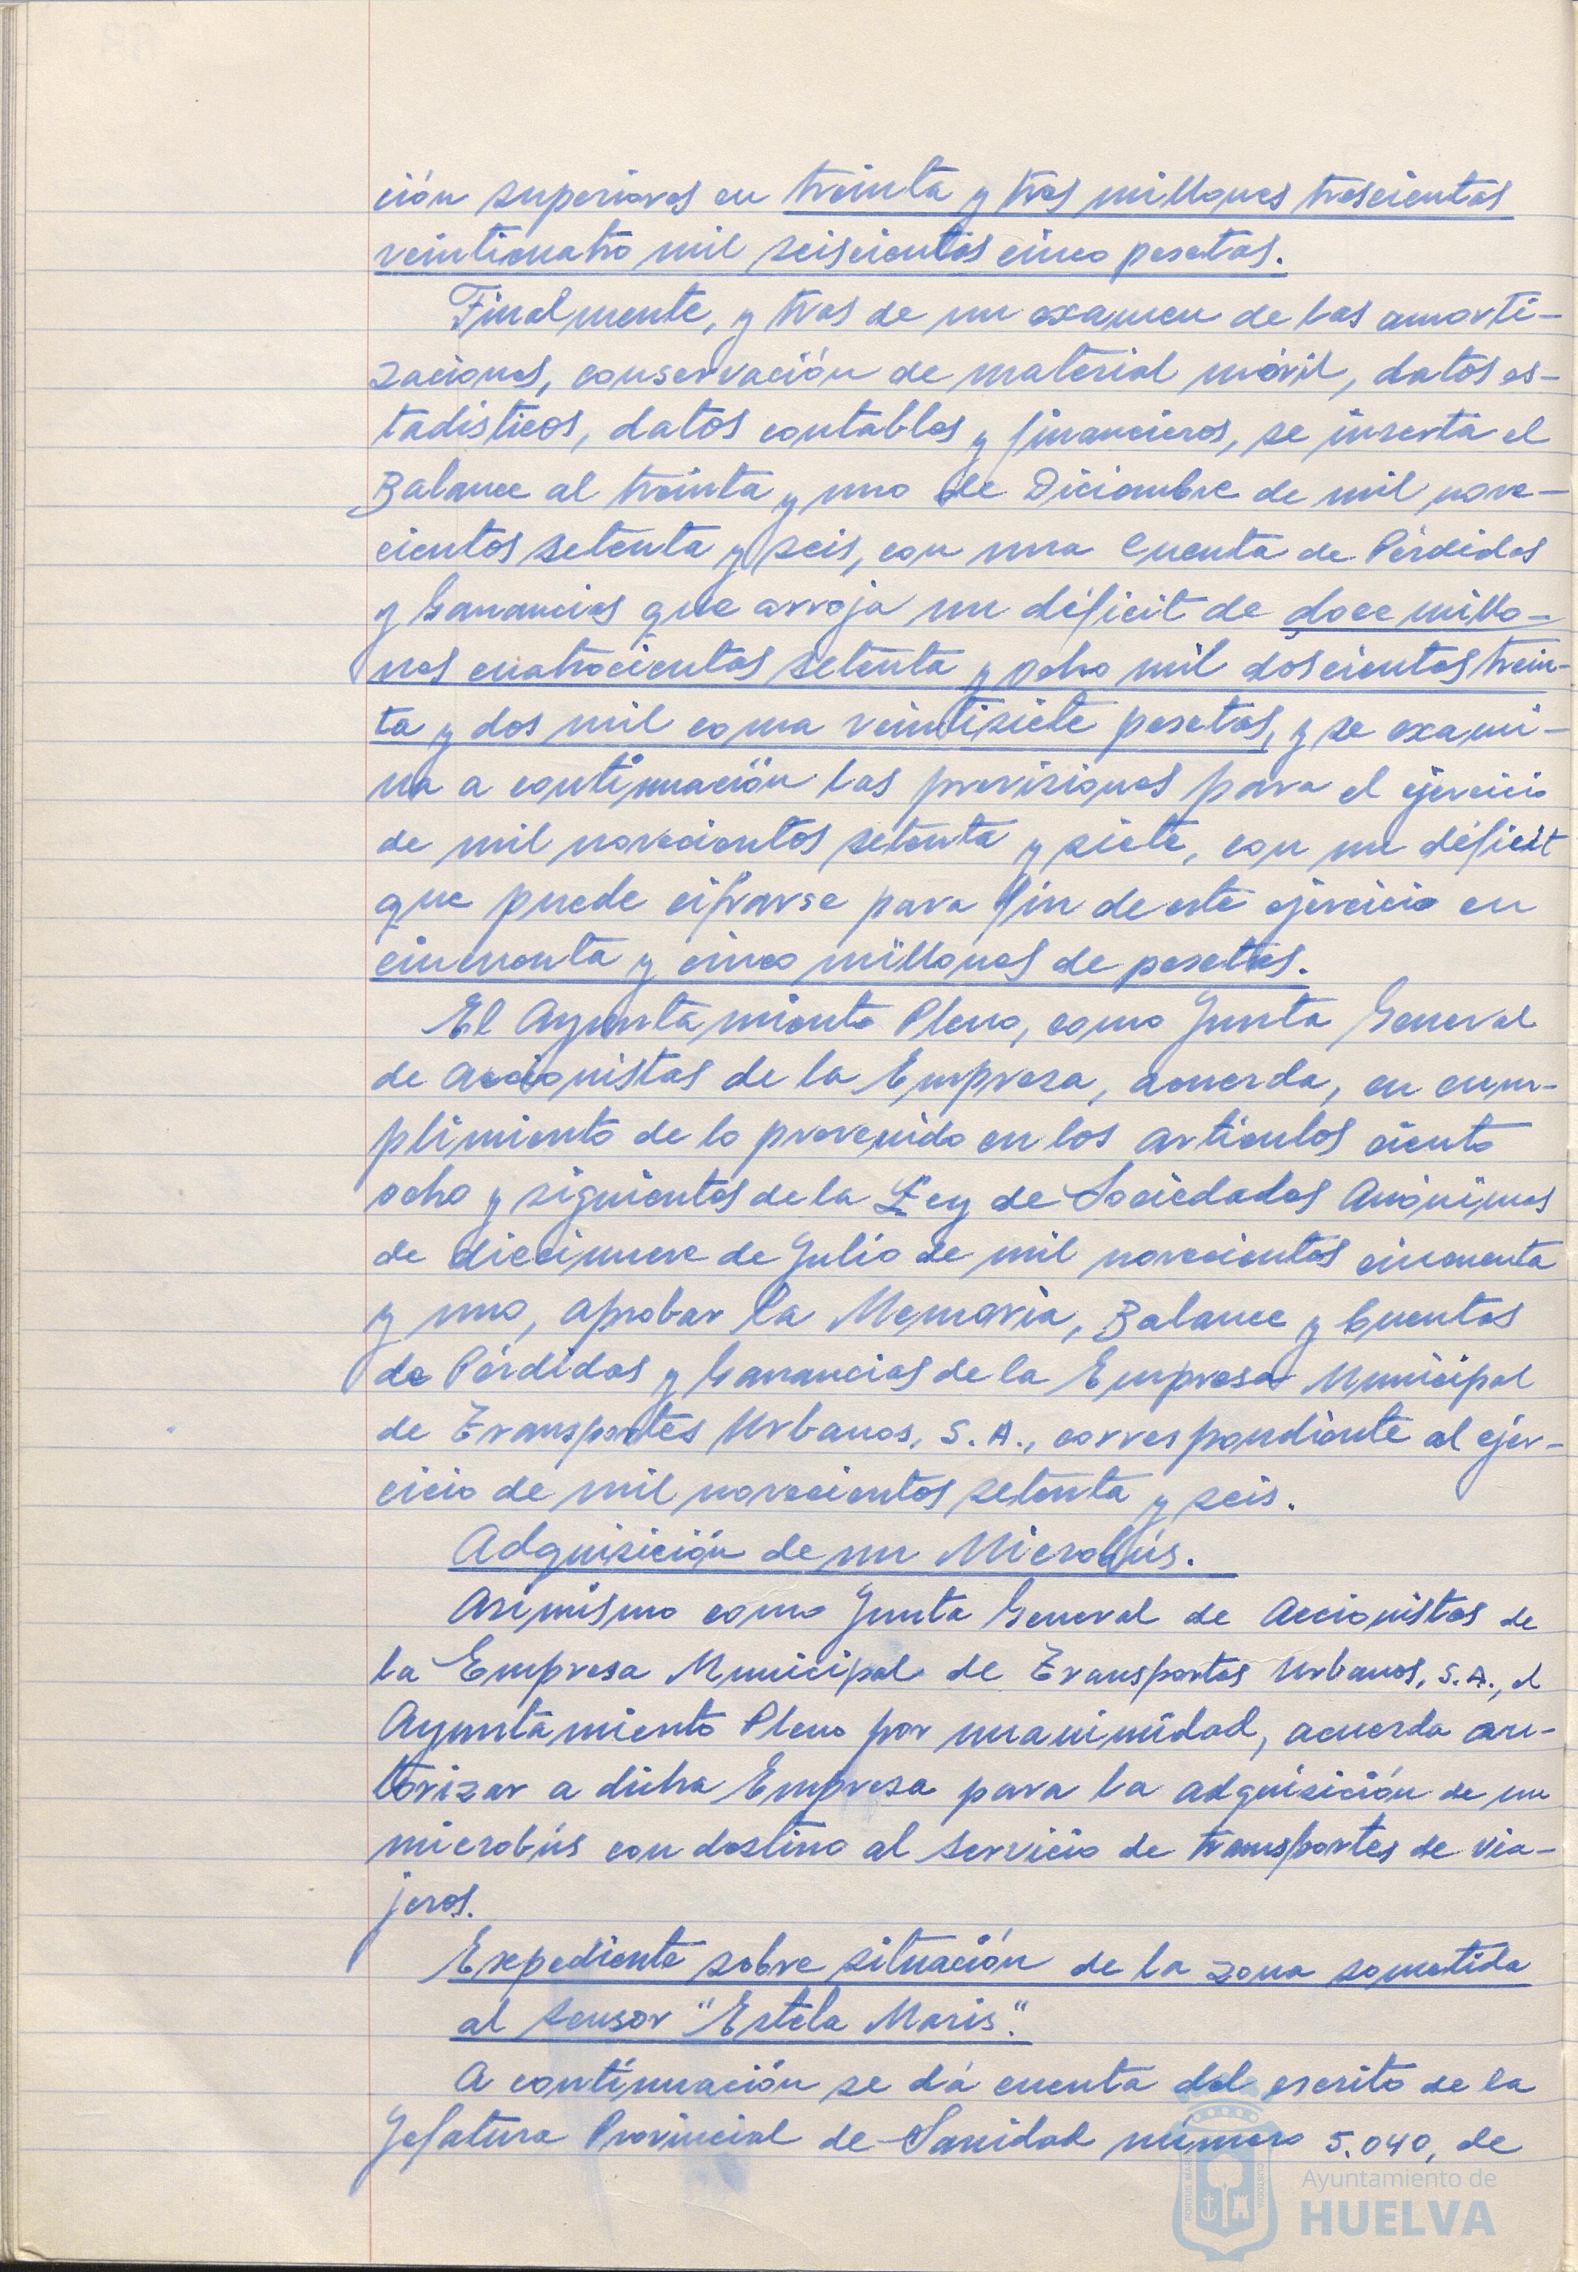 ción superiores en treinta y tres millones trescientas
veinticuatro mil seiscientas cinco pesetas.
Finalmente, y tras de un examen de las amorti-
zaciones, conservación de material móvil, datos es-
tadísticos, datos contables y financieros, se inserta el
Balance al treinta y uno de Diciembre de mil nove-
cientos setenta y seis, con una Cuenta de Pérdidas
y Ganancias que arroja un déficit de doce millo-
nes cuatrocientas setenta y ocho mil doscientas trein-
ta y dos mil coma veintisiete pesetas, y se exami-
na a continuación las previsiones para el ejercicio
de mil novecientos setenta y siete, con un déficit
que puede cifrarse para fin de este ejercicio en
cincuenta y cinco millones de pesetas.
El Ayuntamiento Pleno, como Junta General
de Accionistas de la Empresa, acuerda, en cum-
plimiento de lo prevenido en los artículos ciento
ocho y siguientes de la Ley de Sociedades Anónimas
de diecinueve de Julio de mil novecientos cincuenta
y uno, aprobar la Memoria, Balance y Cuentas
de Pérdidas y Ganancias de la Empresa Municipal
de Transportes Urbanos, S.A., correspondiente al ejer-
cicio de mil novecientos setenta y seis.
Adquisición de un Microbús.
Asimismo como Junta General de Accionistas de
la Empresa Municipal de Transportes Urbanos, S.A., el
Ayuntamiento Pleno por unanimidad, acuerda au-
torizar a dicha Empresa para la adquisición de un
microbús con destino al servicio de transportes de via-
jeros.
Expediente sobre situación de la zona sometida
al sensor "Estela Maris".
A continuación se dá cuenta del escrito de la
Jefatura Provincial de Sanidad número 5.040, de
PORTUS MARIS
CUSTODIA
Ayuntamiento de
HUELVA